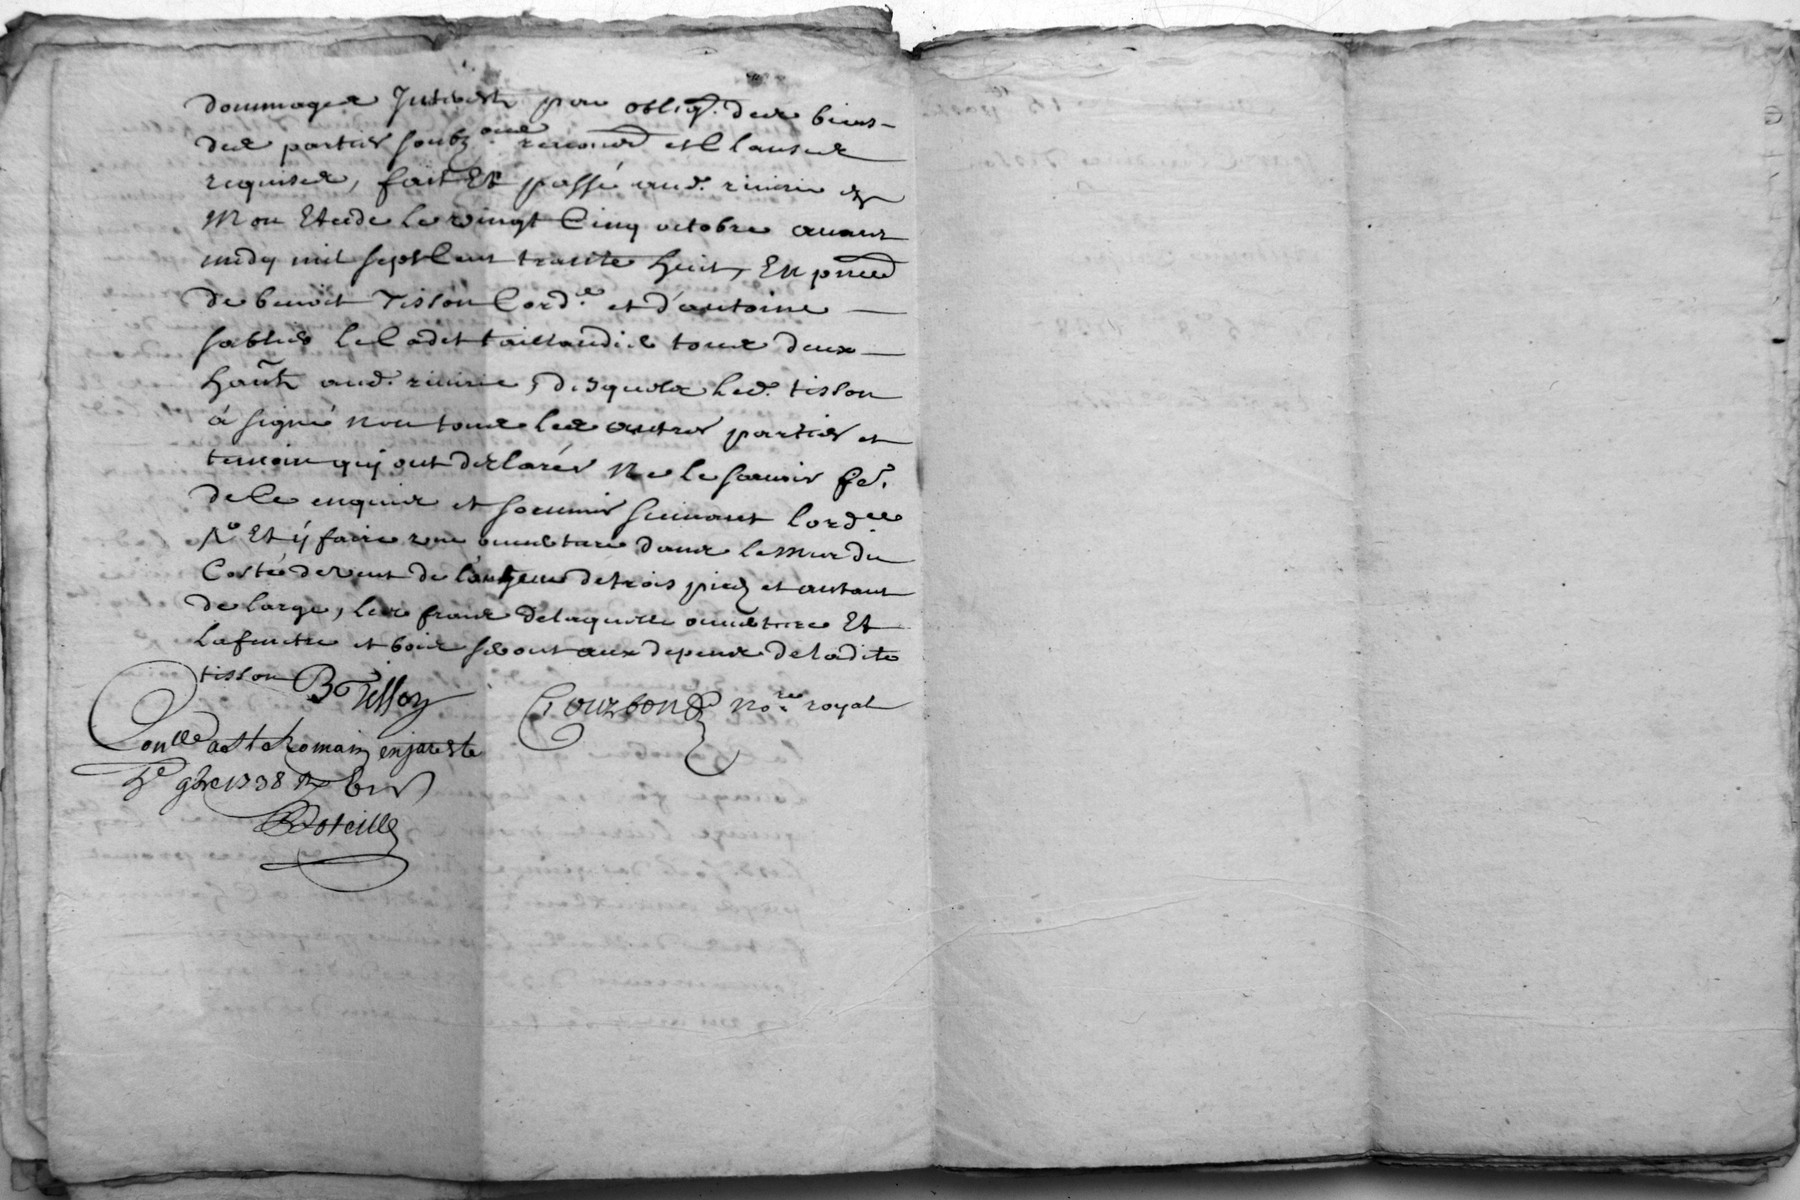 dommages Interests par oblig.on des biens
des parties soubz.ons renond et clauses
requises, fait Et passé aud. riverie en
Mon Etude le vingt Cinq octobre avant
midy mil sept Cent trante huit, En pnced
de benoit Tisson Cord.er et d'antoine
sablies le Cadet taillandier tous deux
hants aud. riverie, desquels led. tisson
á signé non tous les autres parties et
temoin quy ont declarés Ne le savoir fe.
de ce enquis et sommés suivant lord.ce
Et ÿ faire une ouverture dans le Mur du
Costé de vent de de trois piedz et autant
de large, les frais de laquelle ouverture Et
la fenetre et bois seront aux depens de ladite
tisson B Tisson
Courbon no.re royal
Con.lle a St Romain en jareste
le 9bre 1738
Boteille